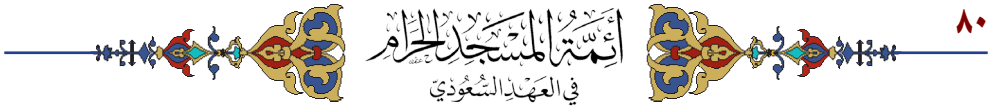 ٨٠
أَئِمَّةُ المَسْجِدِ الحَرَامِ
في العَهْدِ السُّعُودِيّ